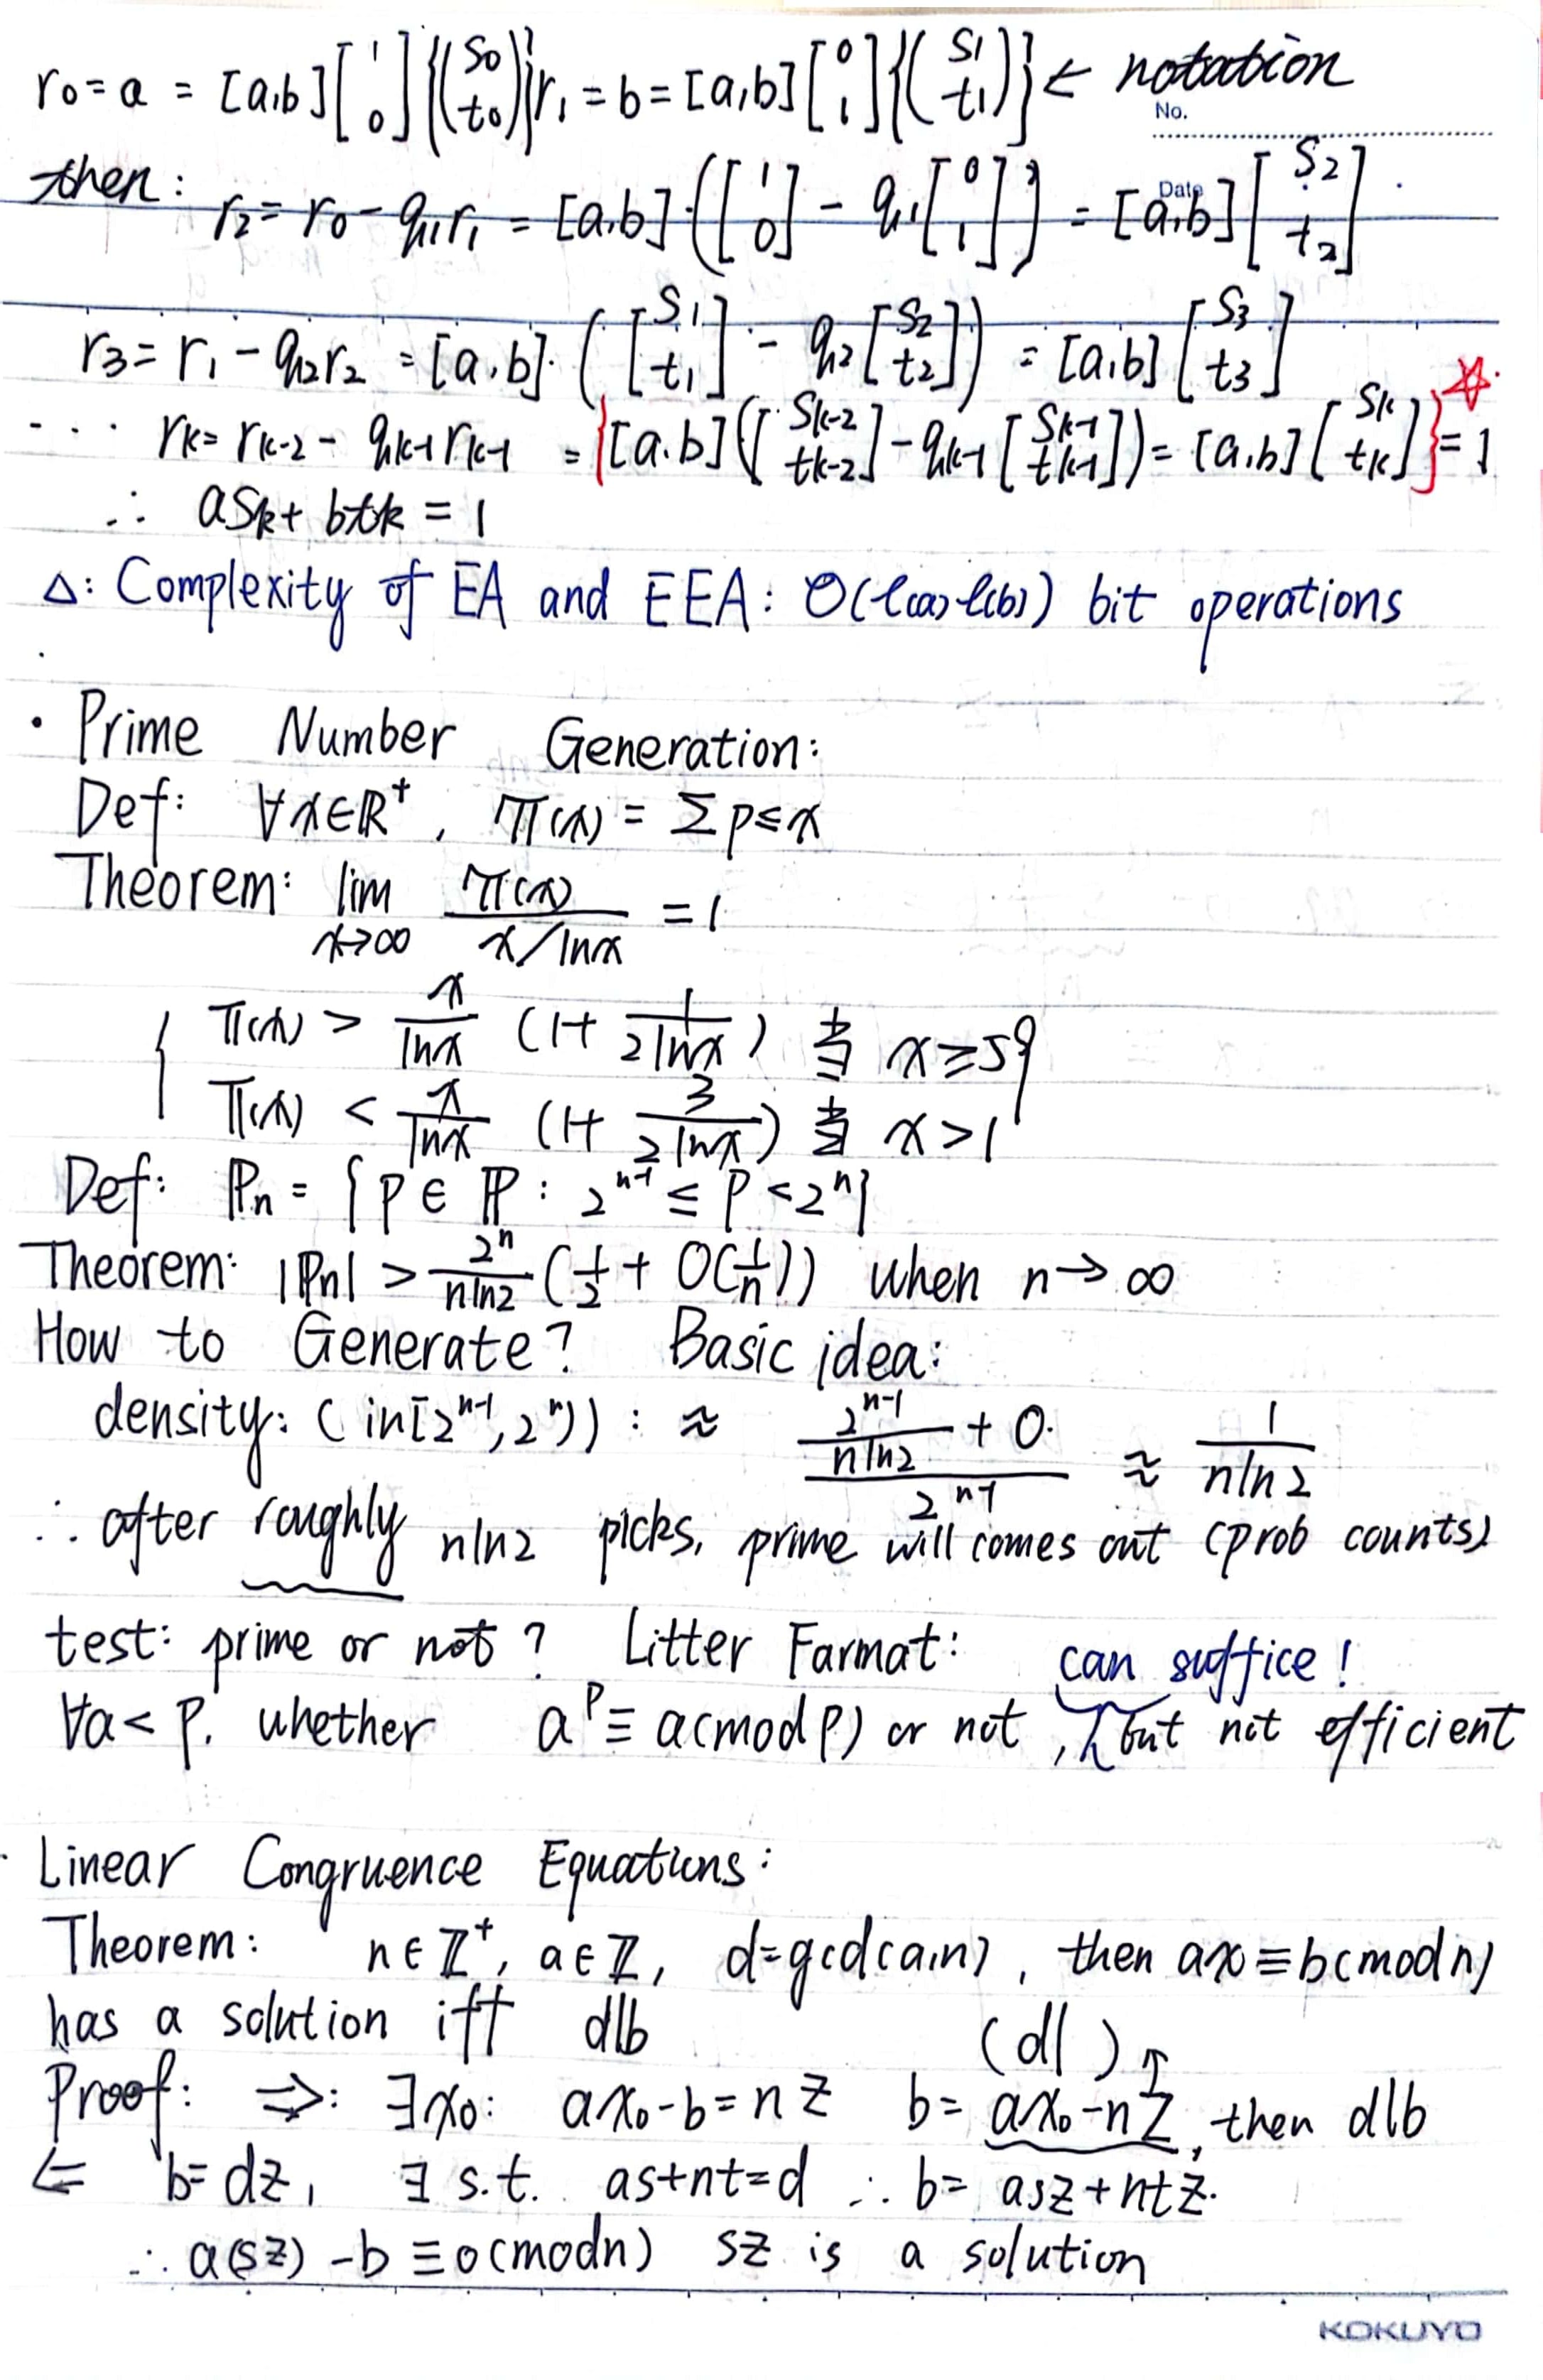 r₀ = a = [a,b] [1 0] {(s₀ t₀)} r₁ = b = [a,b] [0 1] {(s₁ t₁)} ← notation
No.
then: r₂ = r₀ - q₁r₁ = [a,b]·([1 0] - q₁[0 1]) = [a,b][s₂ t₂]
Date
r₃ = r₁ - q₂r₂ = [a,b]·([s₁ t₁] - q₂[s₂ t₂]) = [a,b][s₃ t₃]
··· rₖ = rₖ₋₂ - qₖ₋₁rₖ₋₁ = {[a,b]([sₖ₋₂ tₖ₋₂] - qₖ₋₁[sₖ₋₁ tₖ₋₁]) = [a,b][sₖ tₖ]} = 1 ☆
∴ asₖ + btₖ = 1
Δ: Complexity of EA and EEA: O(l(a)·l(b)) bit operations
· Prime Number Generation:
Def: ∀x∈ℝ⁺, π(x) = Σ p≤x
Theorem: lim x→∞ π(x) / (x/lnx) = 1
{ π(x) > x/lnx (1 + 1/(2lnx)) 当 x ≥ 59
π(x) < x/lnx (1 + 3/(2lnx)) 当 x > 1
Def: ℙₙ = {p ∈ ℙ : 2ⁿ⁻¹ ≤ p < 2ⁿ}
Theorem: |ℙₙ| > 2ⁿ/(nln2) (1/2 + O(1/n)) when n → ∞
How to Generate? Basic idea:
density: (in[2ⁿ⁻¹, 2ⁿ)) : ≈ (2ⁿ⁻¹/(nln2) + 0.)/2ⁿ⁻¹ ≈ 1/(nln2)
∴ after roughly nln2 picks, prime will comes out (prob counts)
test: prime or not? Litter Farmat: can suffice!
∀a < p, whether aᵖ ≡ a(mod p) or not, but not efficient
· Linear Congruence Equations:
Theorem: n∈ℤ⁺, a∈ℤ, d=gcd(a,n), then ax ≡ b(mod n)
has a solution iff d|b (d| )↑
Proof: ⇒: ∃x₀: ax₀-b = nz b = ax₀-nz, then d|b
⇐ b = dz, ∃ s.t. as+nt=d ∴ b = asz+ntz.
∴ a(sz) - b ≡ 0(mod n) sz is a solution
KOKUYO